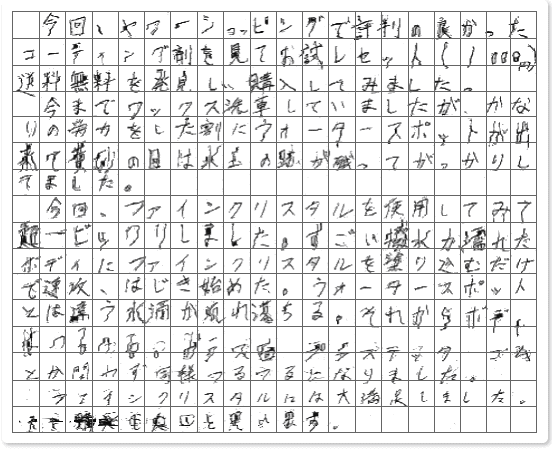 今回、ヤフーショッピングで評判の良かった
コーティング剤を見てお試しセット(1000円)
送料無料を発見し、購入してみました。
今までワックス洗車していましたが、かな
りの労力をした割にウォータースポットが出
来て黄砂の日は水玉の跡が残ってがっかりし
てました。
今回、ファインクリスタルを使用してみて
超ービックリしました。すごい撥水力濡れた
ボディにファインクリスタルを塗り込むだけ
で速攻、はじき始めた。ウォータースポット
とは違う水滴が流れ落ちる。それからボディ
プラスチック
とか問わず同様つるつるになりました。
ファインクリスタルには大満足しました。
と思います。